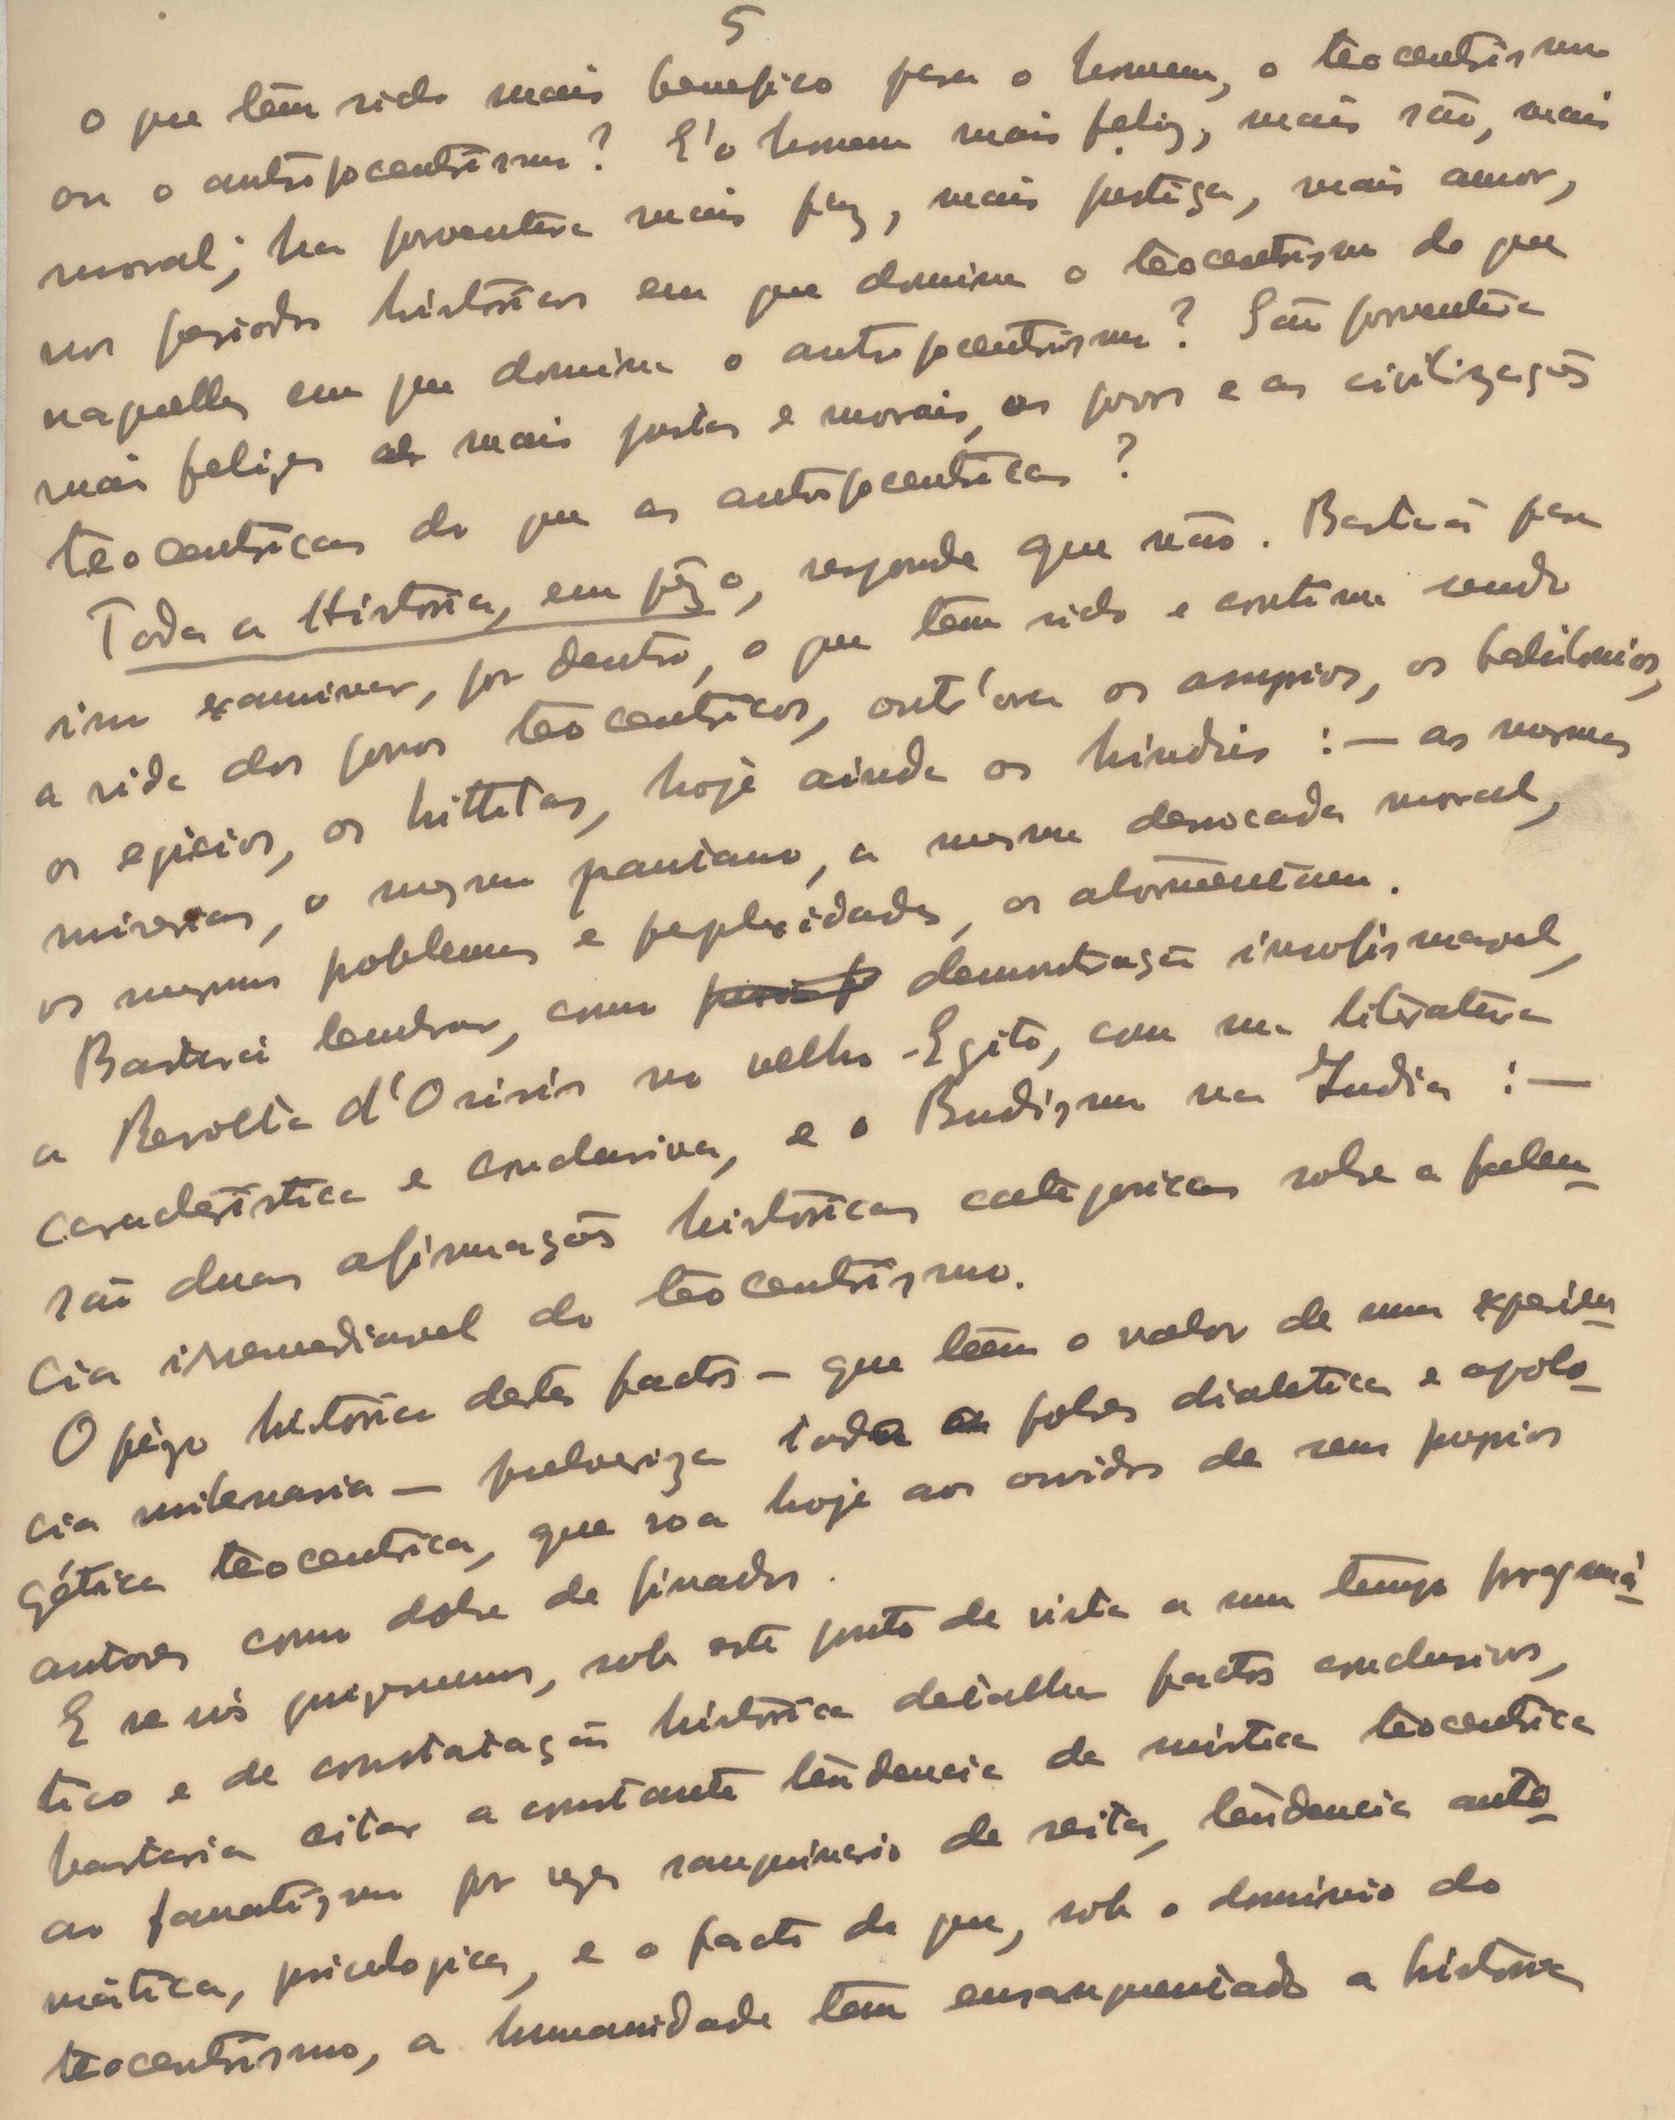 5
o que têm sido mais benefico para o homem, o teocentrismo
ou o antropocentrismo? E' o homem mais feliz, mais são, mais
moral; ha porventura mais paz, mais justiça, mais amor,
nos periodos históricos em que domina o teocentrismo do que
naquelles em que domina o antropocentrismo? São porventura
mais felizes mais justas e morais, os povos e as civilizações
teocentricas do que as antropocentricas?
Toda a História, em pêzo, responde que não. Bastará para
isso examinar, por dentro, o que tem sido e continua sendo
a vida dos povos teocentricos, outr'ora os assyrios, os babilonios,
os egicios, os hittitas, hoje ainda os hindús :— as mesmas
miserias, o mesmo pantano, a mesma derrocada moral,
os mesmos problemas e perplexidades, os atormentam.
Bastará lembrar, como demonstração insofismavel,
a Revolta d'Osiris no velho Egito, com sua literatura
caracteristica e conclusiva, e o Budismo na India :—
são duas afirmações históricas categoricas sobre a falen-
cia irremediavel do teocentrismo.
O pêzo histórico destes factos — que teem o valor de uma experien-
cia milenaria — pulveriza toda a pobre dialetica e apolo-
gética teocentrica, que soa hoje aos ouvidos de seus proprios
autores como dobre de finados.
E se nós quizessemos, sob este ponto de vista a um tempo pragmá-
tico e de constatação histórica detalhar factos conclusivos,
bastaria citar a constante tendencia da mistica teocentrica
ao fanatismo por vezes sanguinario de seita, tendencia auto-
mática, psicologica, e o facto de que, sob o dominio do
teocentrismo, a humanidade tem ensanguentado a história